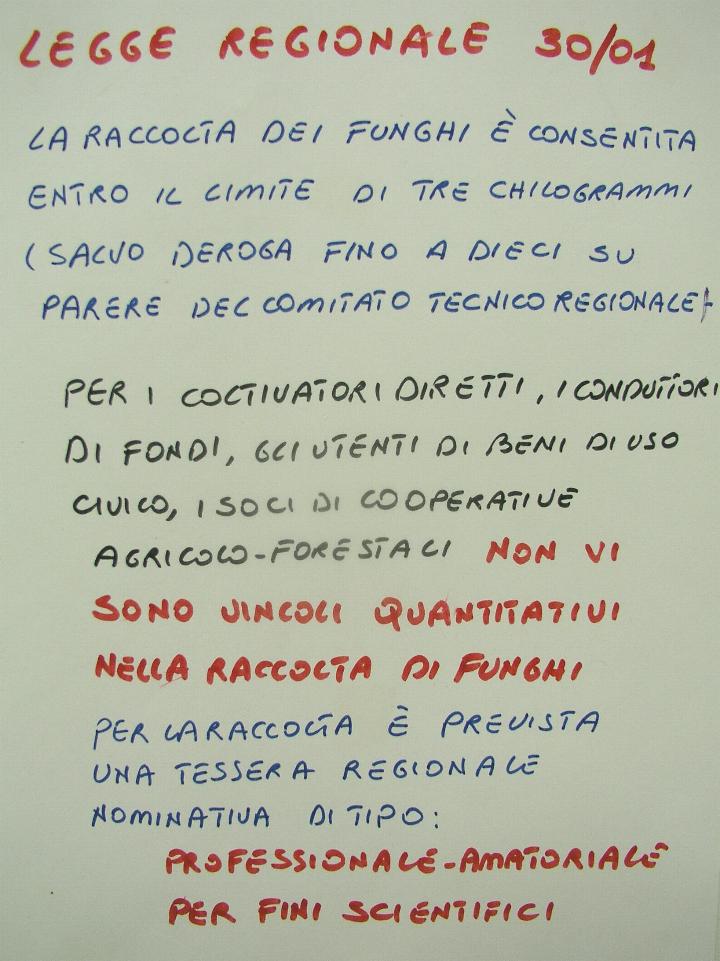 LEGGE REGIONALE 30/01
LA RACCOLTA DEI FUNGHI È CONSENTITA
ENTRO IL LIMITE DI TRE CHILOGRAMMI
(SALVO DEROGA FINO A DIECI SU
PARERE DEL COMITATO TECNICO REGIONALE)
PER I COLTIVATORI DIRETTI, I CONDUTTORI
DI FONDI, GLI UTENTI DI BENI DI USO
CIVICO, I SOCI DI COOPERATIVE
AGRICOLO-FORESTALI NON VI
SONO VINCOLI QUANTITATIVI
NELLA RACCOLTA DI FUNGHI
PER LA RACCOLTA È PREVISTA
UNA TESSERA REGIONALE
NOMINATIVA DI TIPO:
PROFESSIONALE-AMATORIALE
PER FINI SCIENTIFICI